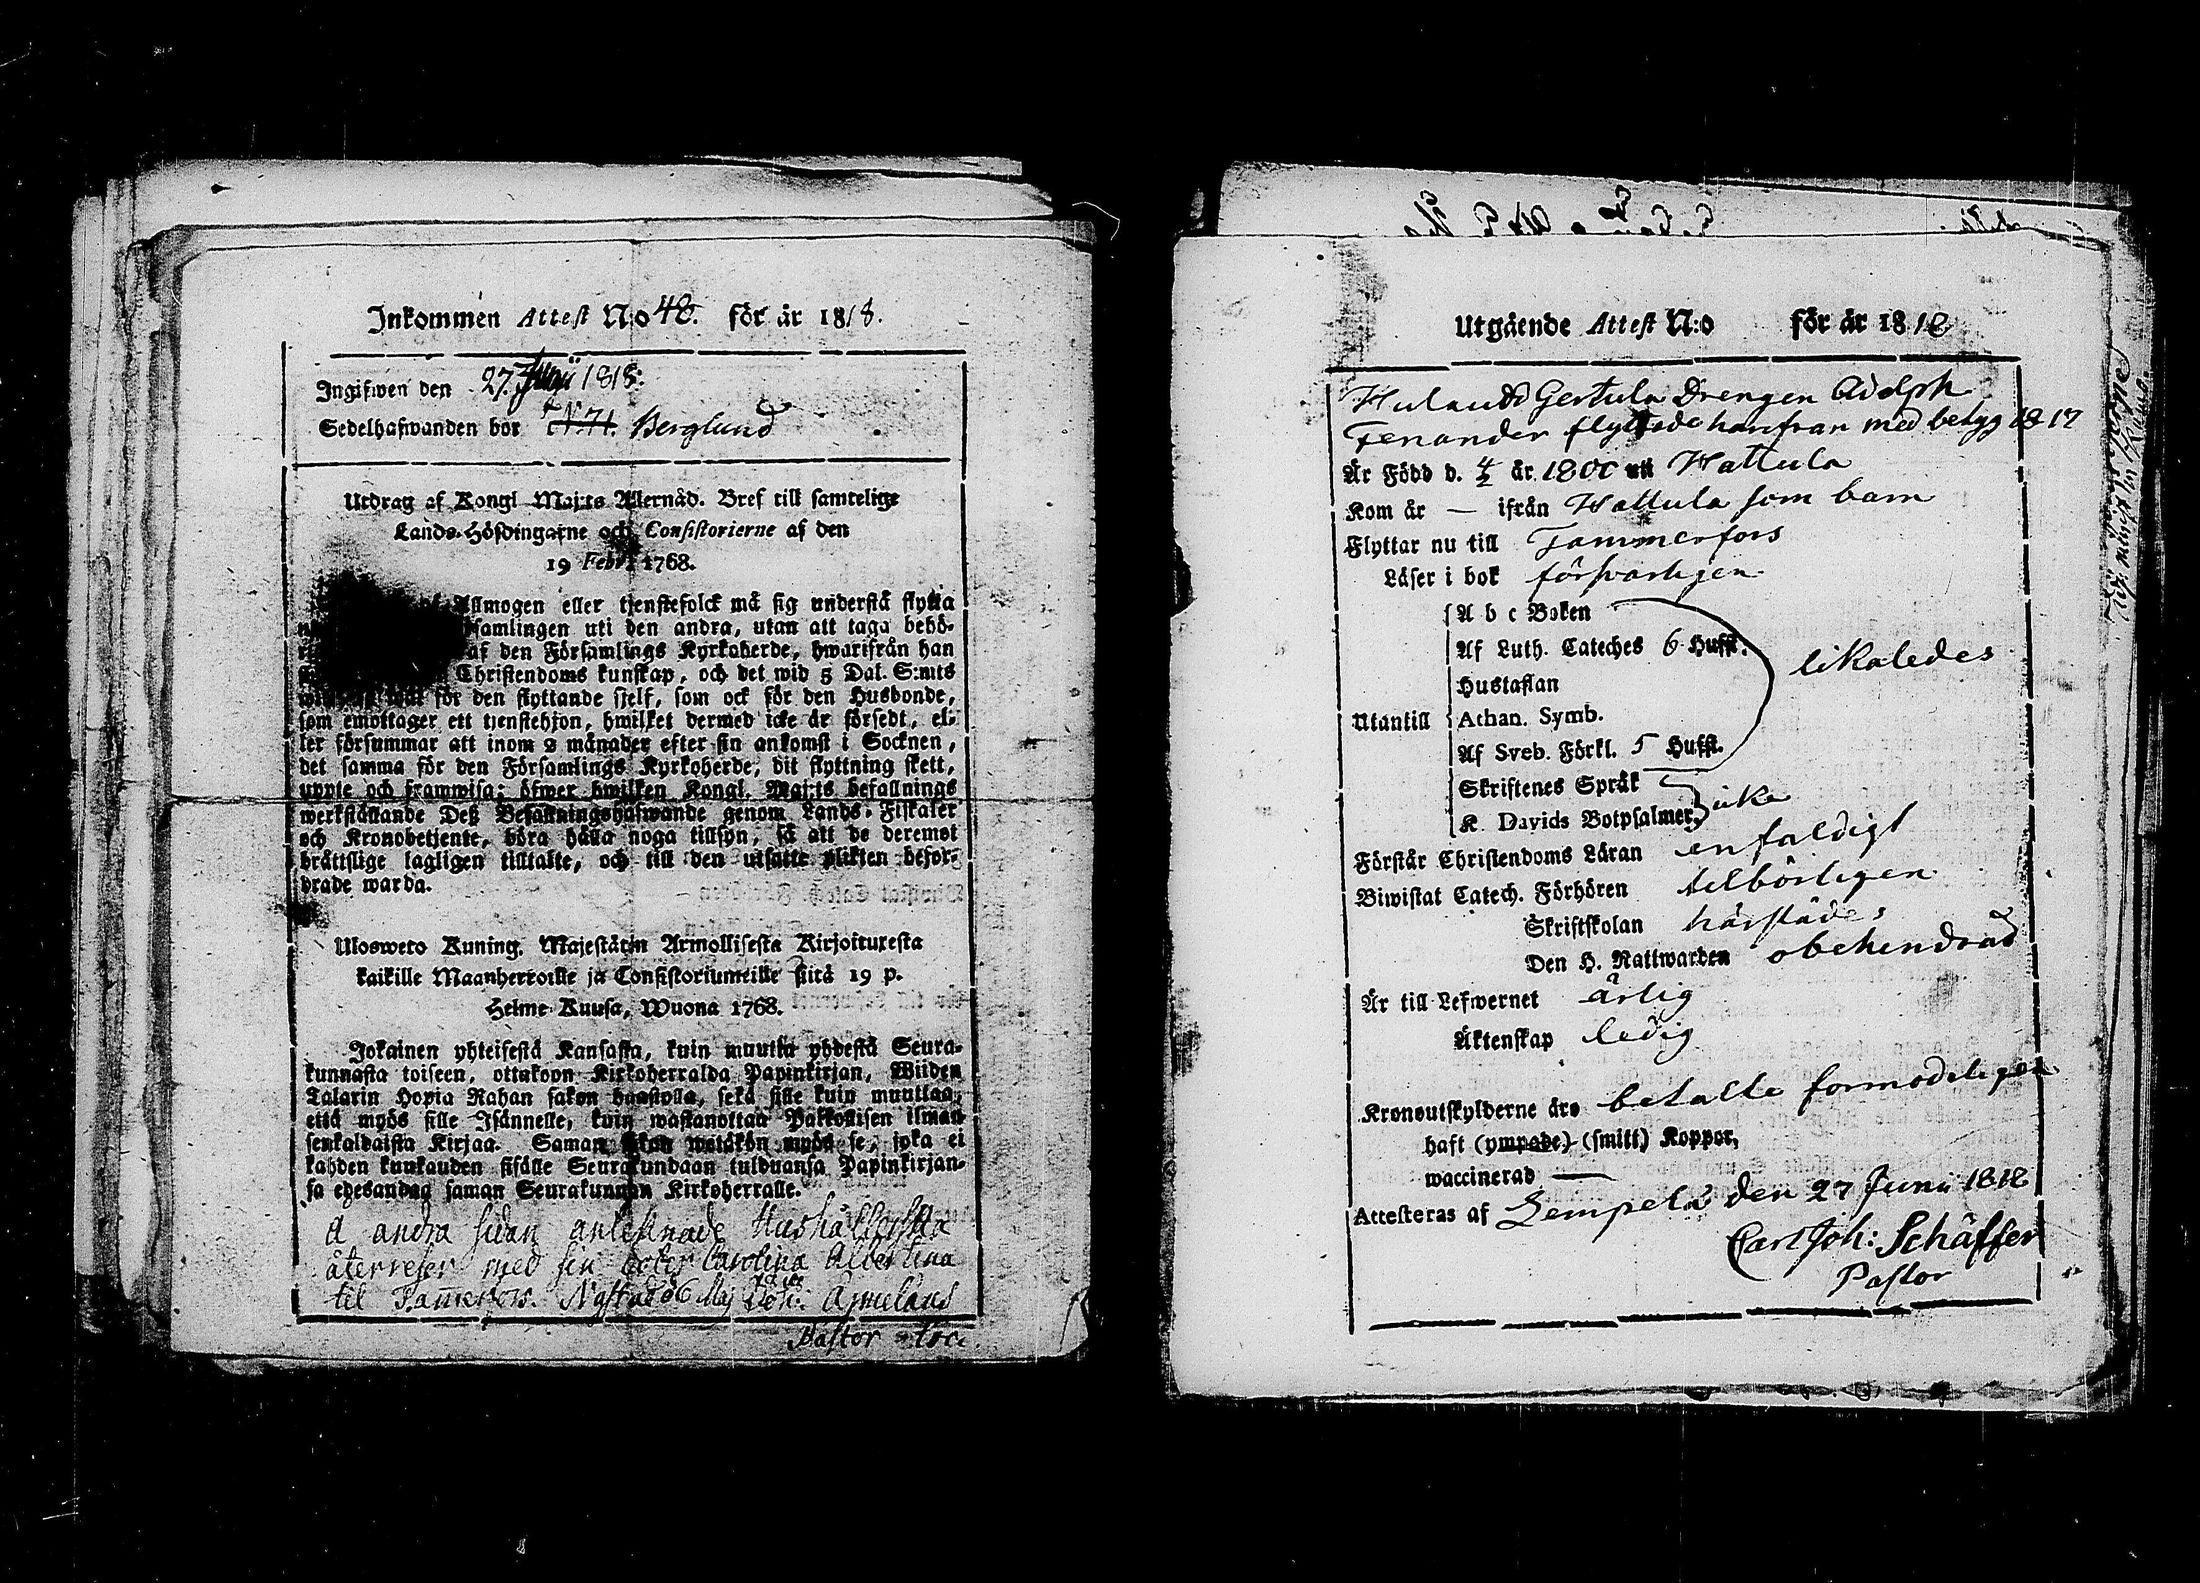 Inkommen Attest No 48. för år 1818.
Ingifwen den 27. 1818.
Sedelhafwanden bor N. 71. Berglund
Utdrag af Kongl Maj:ts Allernåd. Bref till samtelige
Lands-Höfdingarne och Consistorierne af den
19 Febr. 1768.
Allmogen eller tjenstefolck må sig understå flytta
samlingen uti den andra, utan att taga behö-
af den Församlings Kyrkoherde, hwarifrån han
Christendoms kunskap, och det wid 5 Dal. S:mts
för den flyttande sjelf, som ock för den Husbonde,
som emottager ett tjenstehjon, hwilket dermed icke är försedt, el-
ler försummar att inom 2 månader efter sin ankomst i Socknen,
det samma för den Församlings Kyrkoherde, dit flyttning skett,
uppte och framwisa; öfwer hwilken Kongl. Maj:ts befallnings
werkställande Deß Befallningshafwande genom Lands-Fiskaler
och Kronobetjente, böra hålla noga tillsyn, så att de deremot
bråttslige lagligen tilltalte, och till den utsatte plikten befor-
drade warda.
Ulosweto Kuning. Majestätin Armollisesta Kirjoituxesta
kaikille Maanherroille ja Consistoriumeille siitä 19 p.
Helme-Kuusa, Wuona 1768.
Jokainen yhteisestä Kansasta, kuin muutta yhdestä Seura-
kunnasta toiseen, ottakoon Kirkoherralda Papinkirjan, Wiiden
Talarin Hopia Rahan sakon haastolla, sekä sille kuin muuttaa,
että myös sille Isännelle, kuin wastanottaa Palkollisen ilman
senkaldaista Kirjaa. Saman sakon wetäkön myös se, joka ei
kahden kuukauden sisälle Seurakundaan tulduansa Papinkirjan-
sa edesanda saman Seurakunnan Kirkoherralle.
å andra sidan antecknade Hushållerska
återreser med sin doter Carolina Albertina
til Tammerfors. Nystad 6 Maj Joh:
Pastor loci.
Utgående Attest N:o för år 1818
Gertula Drengen Adolph
Fenander flyttade härifrån med betyg 1817
Är Född d. 4/2 år 1800 uti Hattula
Kom år — ifrån Hattula som barn
Flyttar nu till Tammerfors
Läser i bok försvarligen
Utantill
A b c Boken
Af Luth. Cateches 6 Hufst.
Hustaflan
Athan. Symb.
Af Sveb. Förkl. 5 Hufst.
likaledes
Skriftenes Språk
K. Davids Botpsalmer,
icke
Förstår Christendoms Läran enfaldigt
Biwistat Catech. Förhören tilbörligen
Skriftskolan härstädes
Den H. Nattwarden obehindrad
Är till Lefwernet ärlig
Äktenskap ledig
Kronoutskylderne äro betalte formodeligen
haft (ympade) (smitt) Koppor,
waccinerad —
Attesteras af Lempelä den 27 Junii 1818
Carl Joh: Schäffer
Pastor